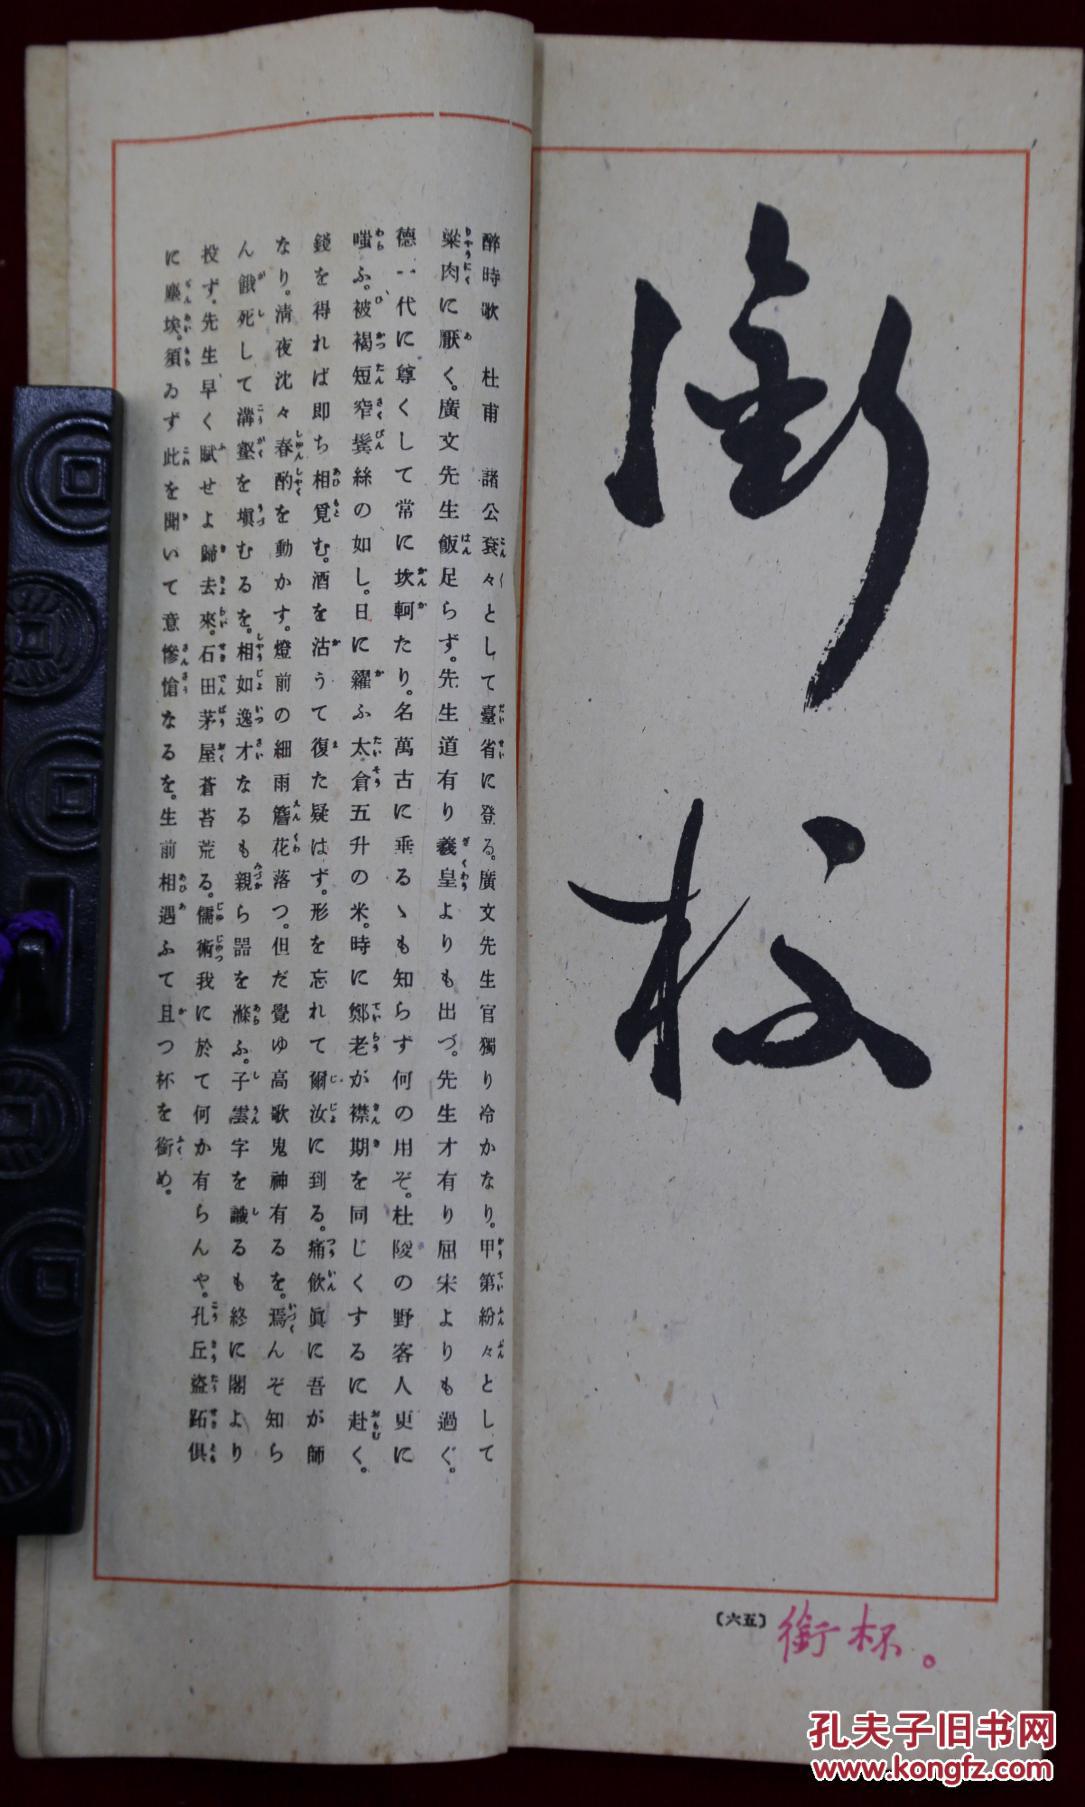 銜杯
醉時歌　杜甫　諸公袞々として臺省に登る。廣文先生官獨り冷かなり。甲第紛々として
粱肉に厭く。廣文先生飯足らず。先生道有り羲皇よりも出づ。先生才有り屈宋よりも過ぐ。
德一代に尊くして常に坎軻たり。名萬古に垂るゝも知らず何の用ぞ。杜陵の野客人更に
嗤ふ。被褐短窄鬢絲の如し。日に糴ふ太倉五升の米。時に鄭老が襟期を同じくするに赴く。
錢を得れば即ち相覓む。酒を沽うて復た疑はず。形を忘れて爾汝に到る。痛飲眞に吾が師
なり。清夜沈々春酌を動かす。燈前の細雨簷花落つ。但だ覺ゆ高歌鬼神有るを。焉んぞ知ら
ん餓死して溝壑を塡むるを。相如逸才なるも親ら器を滌ふ。子雲字を識るも終に閣より
投ず。先生早く賦せよ歸去來。石田茅屋蒼苔荒る。儒術我に於て何か有らんや。孔丘盜跖俱
に塵埃。須ゐず此を聞いて意慘愴なるを。生前相遇ふて且つ杯を銜め。
〔六五〕
銜杯。
孔夫子旧书网
www.kongfz.com